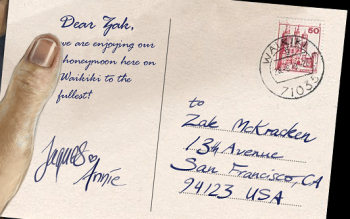 Dear Zak,
we are enjoying our
honeymoon here on
Waikiki to the
fullest!
Jaques
Annie
50
WAIKIKI
71035
to
Zak McKracken
13th Avenue
San Francisco, CA
94123 USA